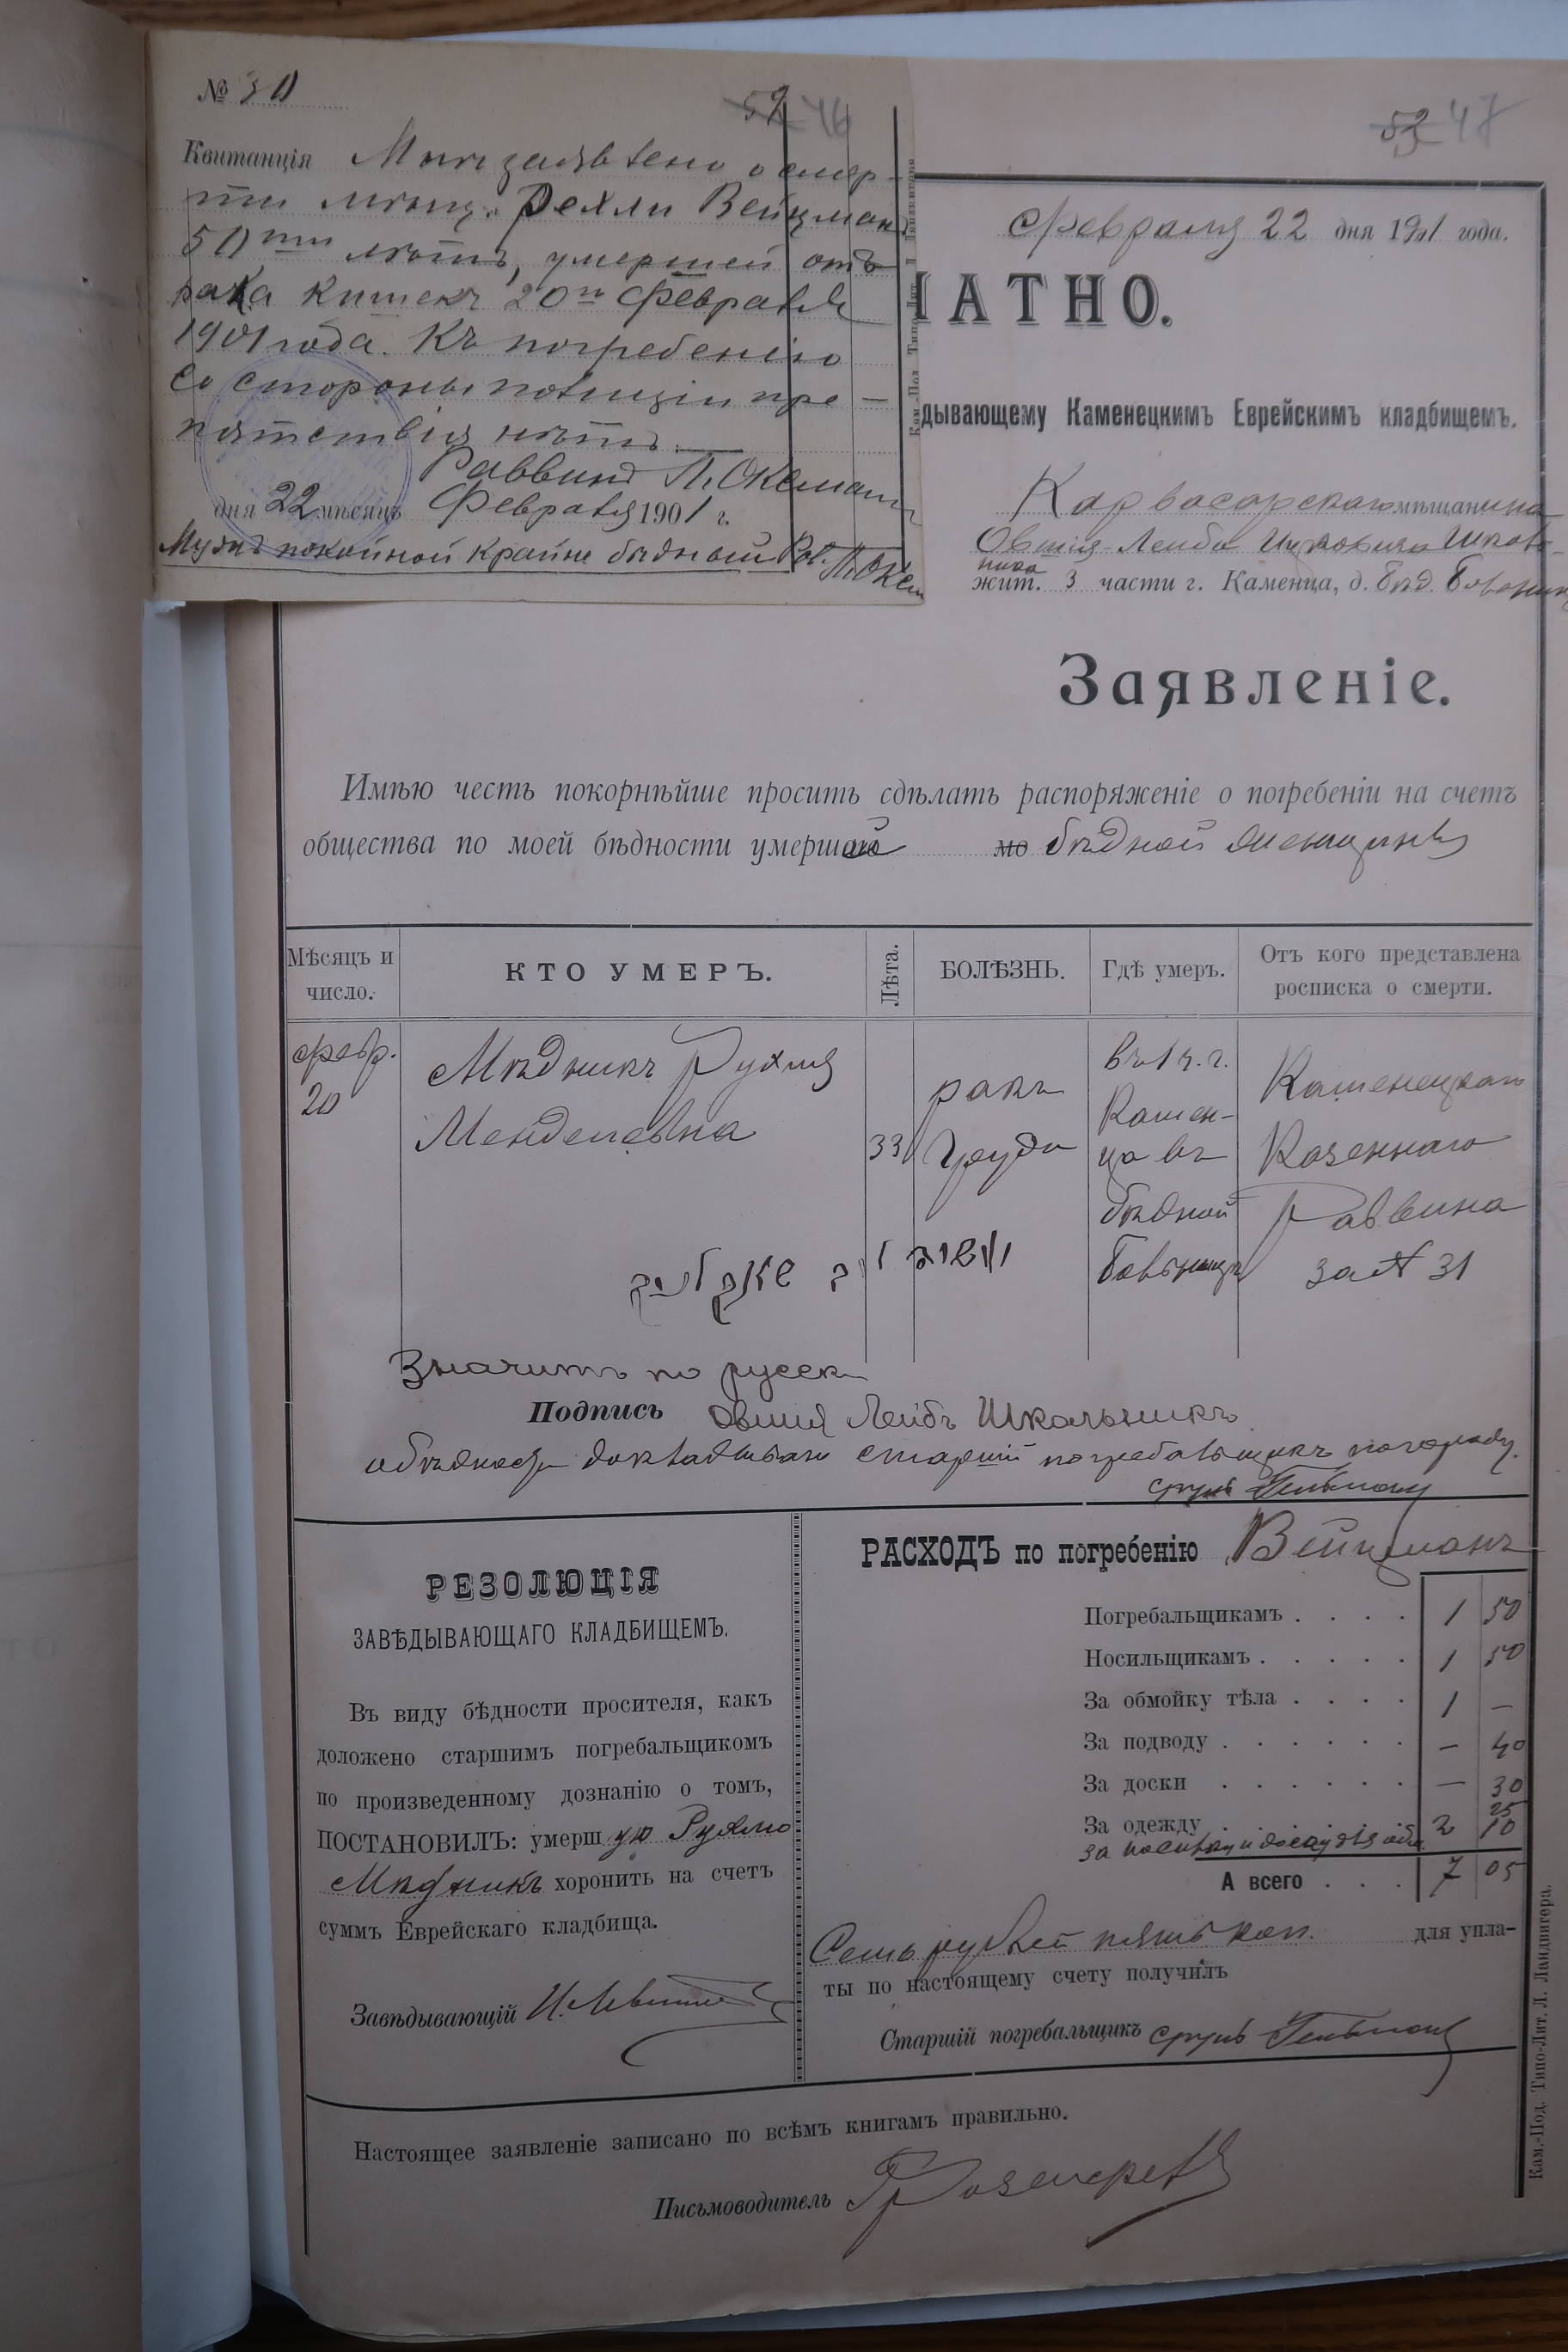 № 30
52 46
Квитанція Мнѣ заявлено о смер-
ти мѣщ. Рехли Вейцманъ
50ти лѣтъ, умершей отъ
рака кишекъ 20го Февраля
1901 года. Къ погребенію
со стороны полиціи пре-
пятствія нѣтъ.
Раввинъ
дня 22 мѣсяцъ Февраля 1901 г.
Мужъ покойной крайне бѣдный Рав.
53 47
Февраля 22 дня 1901 года.
АТНО.
дывающему Каменецкимъ Еврейскимъ кладбищемъ.
Карвасарскаго мѣщанина
Овшія Лейба Ицковича Школь-
ника
жит. 3 части г. Каменца, д. бѣд. больницы
Заявленіе.
Имѣю честь покорнѣйше просить сдѣлать распоряженіе о погребеніи на счетъ
общества по моей бѣдности умершей мо бѣдной женщины
Мѣсяцъ и число. КТО УМЕРЪ. Лѣта. БОЛѢЗНЬ. Гдѣ умеръ. Отъ кого представлена росписка о смерти.
февр. 20 Мѣдникъ Рухля Менделевна 33 ракъ груди въ 1 ч. г. Каменца въ бѣдной больницѣ Каменецкаго Казеннаго Раввина за № 31
Значитъ по русски
Подпись Овшія Лейбъ Школьникъ
о бѣдности докладываю старшій погребальщикъ по городу.
РЕЗОЛЮЦІЯ
ЗАВѢДЫВАЮЩАГО КЛАДБИЩЕМЪ.
Въ виду бѣдности просителя, какъ
доложено старшимъ погребальщикомъ
по произведенному дознанію о томъ,
ПОСТАНОВИЛЪ: умершую Рухлю
Мѣдникъ хоронить на счетъ
суммъ Еврейскаго кладбища.
Завѣдывающій
РАСХОДЪ по погребенію Вейцманъ
Погребальщикамъ . . . . 1 50
Носильщикамъ . . . . . 1 50
За обмойку тѣла . . . . 1 —
За подводу . . . . . . — 40
За доски . . . . . . — 30
За одежду . . . . . . 2 25
за носилку и доску для обм. 10
А всего . . . 7 05
Семь рублей пять коп. для упла-
ты по настоящему счету получилъ
Старшій погребальщикъ
Настоящее заявленіе записано по всѣмъ книгамъ правильно.
Письмоводитель
Кам.-Под. Типо-Лит. Л. Ландвигера.